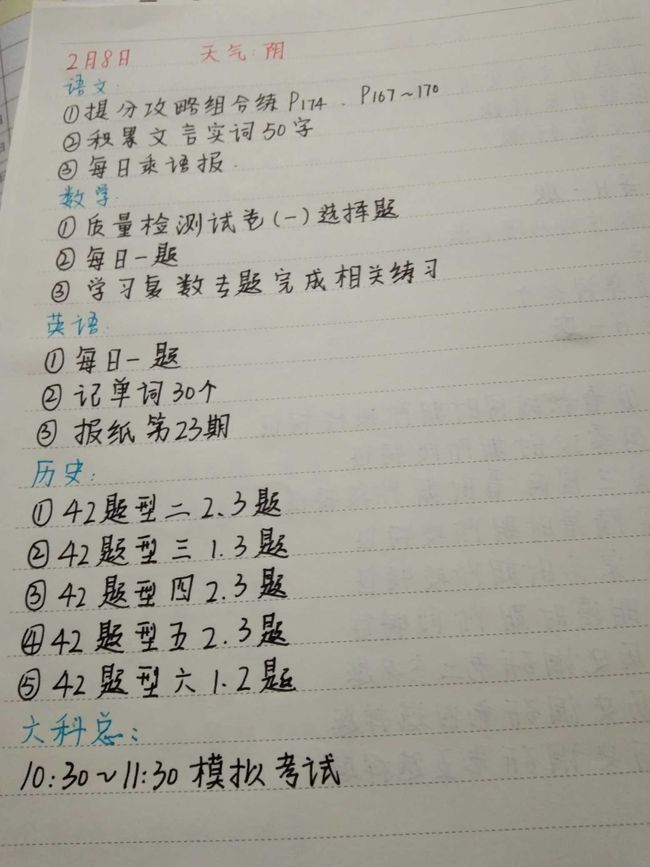 2月8日 天气:阴
语文:
①提分攻略组合练 P174、P167~170
②积累文言实词50字
③每日乘语报.
数学:
①质量检测试卷(一)选择题
②每日一题
③学习复数专题完成相关练习
英语:
①每日一题
②记单词30个
③报纸第23期
历史:
①42题型二 2.3题
②42题型三 1.3题
③42题型四 2.3题
④42题型五 2.3题
⑤42题型六 1.2题
六科总:
10:30~11:30 模拟考试